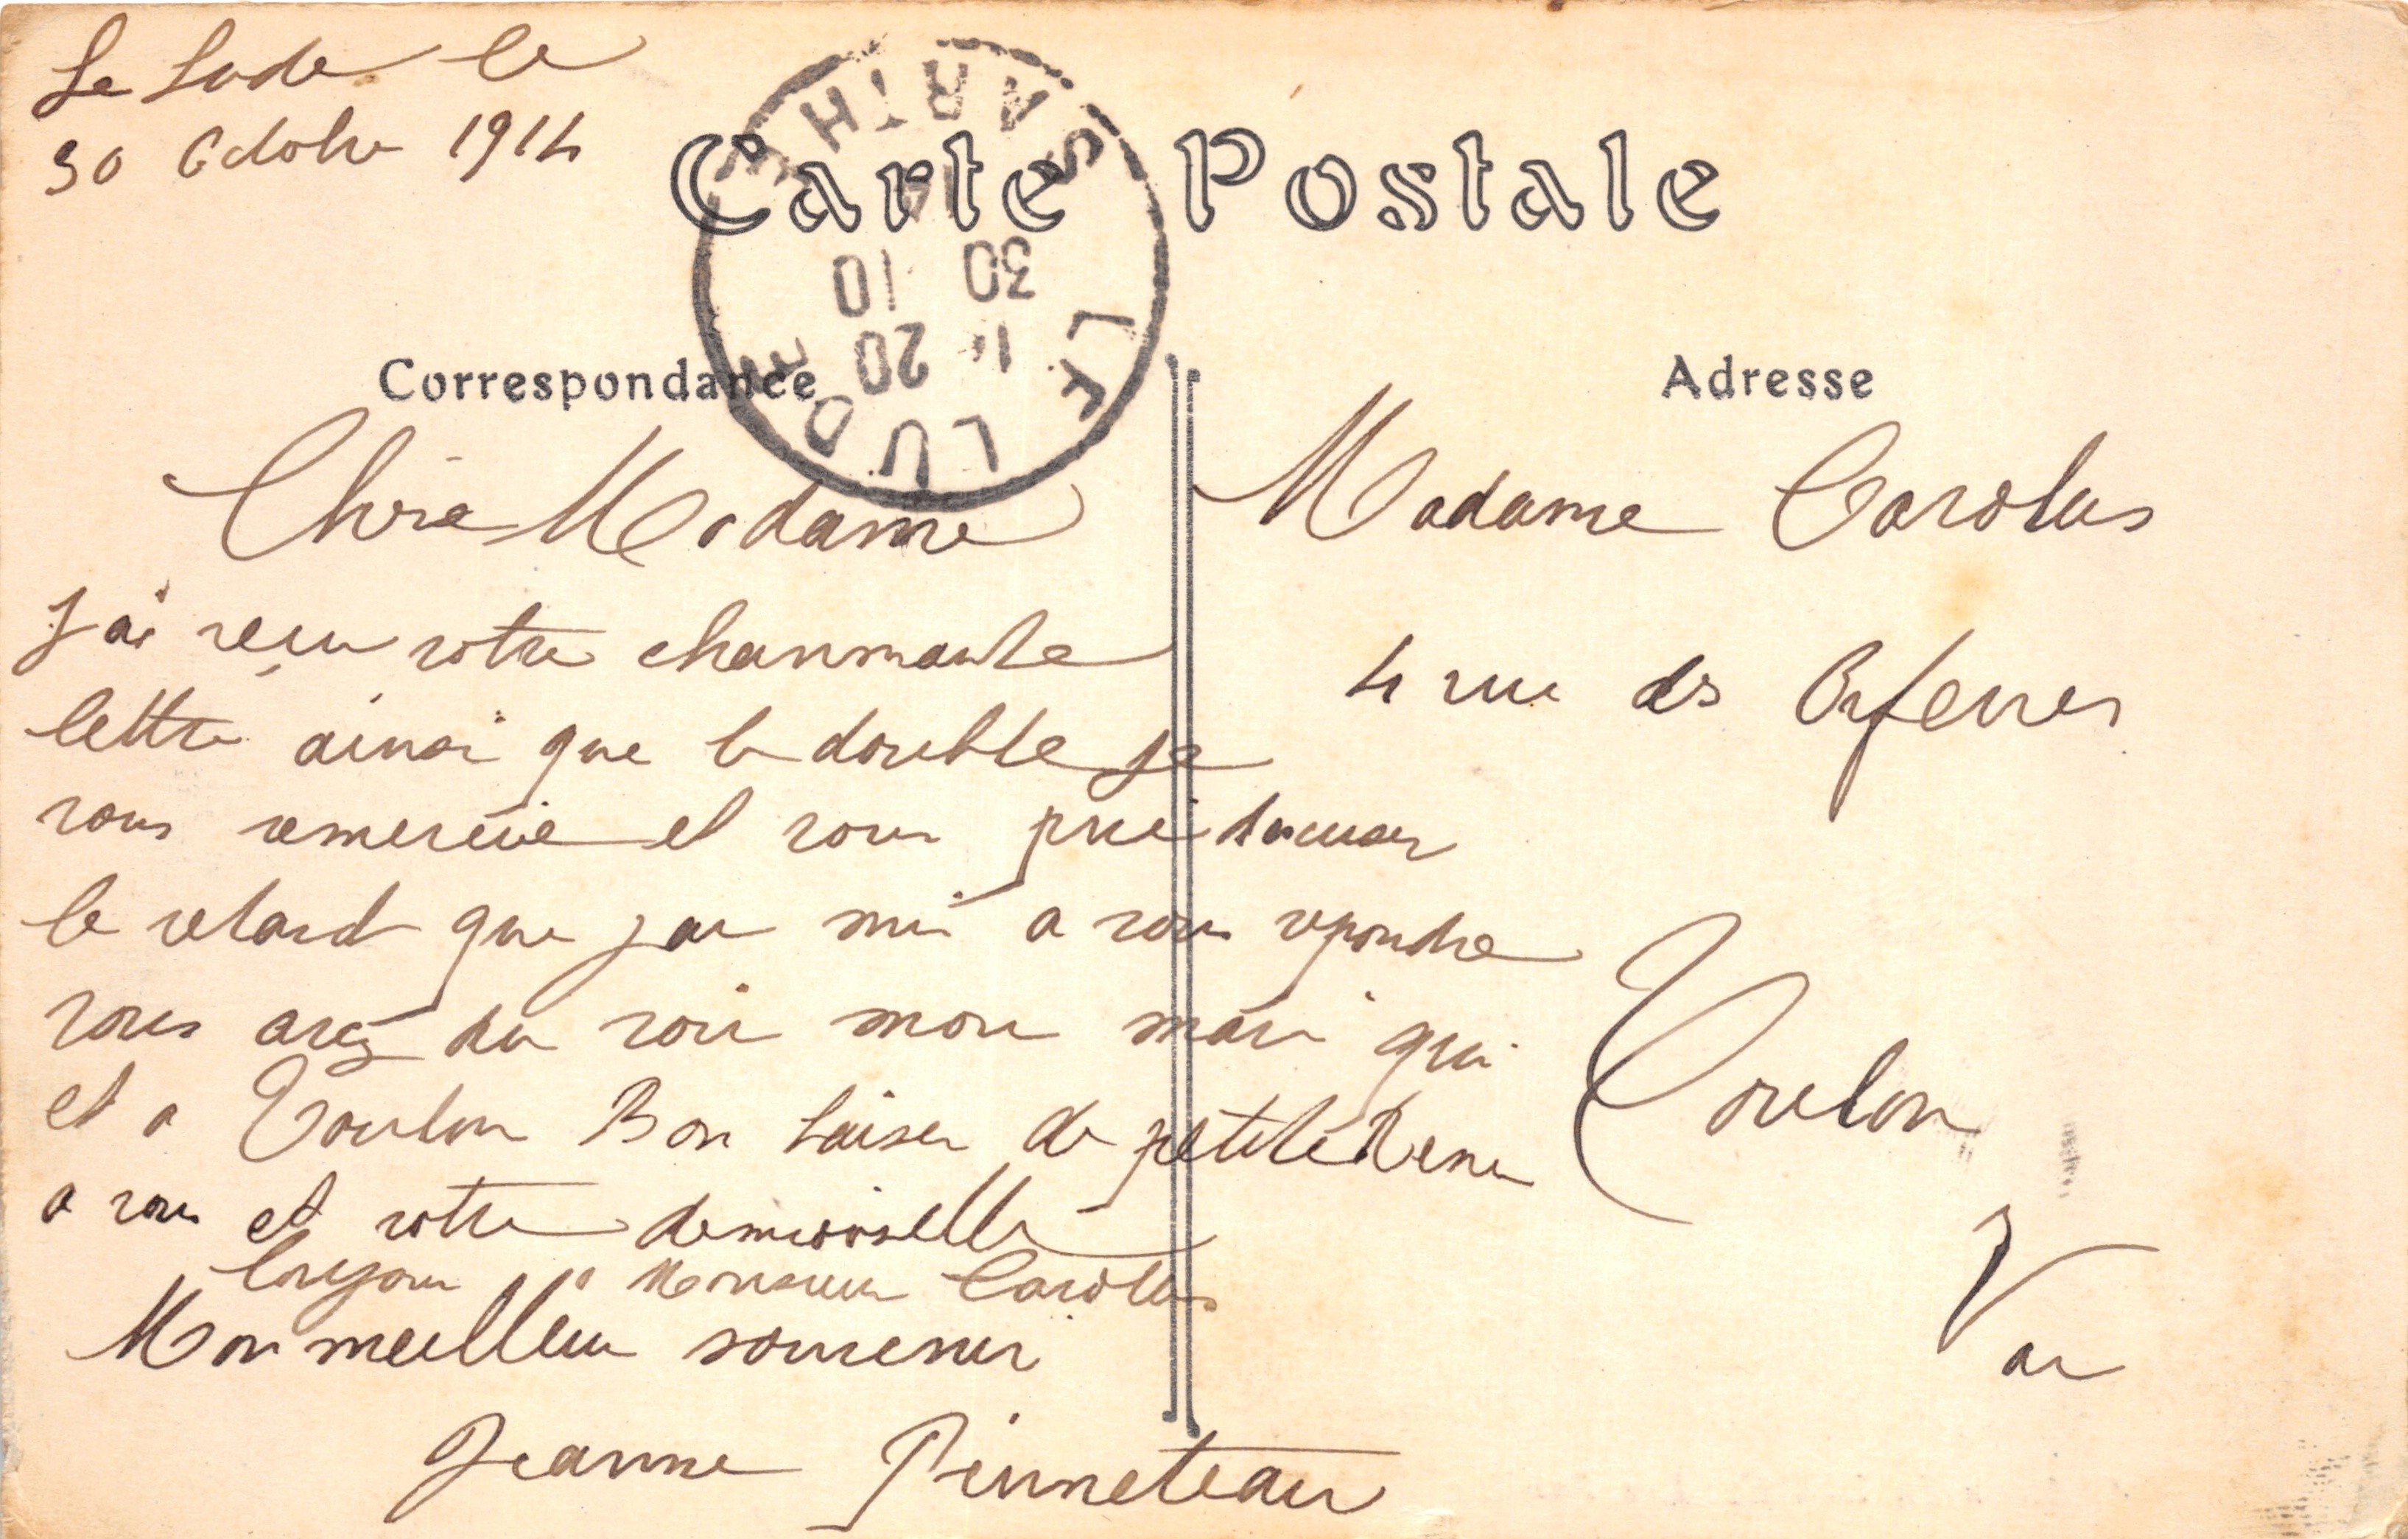 Le Lude le
30 Octobre 1914
Carte Postale
SARTHE
30 10
20
LE LUDE
Correspondance
Chère Madame
J'ai reçu votre charmante
lettre ainsi que le double je
vous remercie et vous prie d'excuser
le retard que j'ai mis a vous repondre
vous avez du voir mon mari qui
et a Toulon Bon baiser de petite Rene
a vous et votre demoiselle
Monsieur Carolus
Mon meilleur souvenir
Jeanne Pinneteau
Adresse
Madame Carolus
4 rue des Orfevres
Toulon
Var